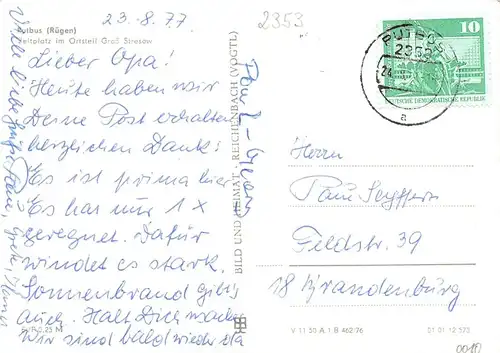 23.8.77
2353
Putbus (Rügen)
Zeltplatz im Ortsteil Groß Stresow
Lieber Opa!
Heute haben wir
Deine Post erhalten
herzlichen Dank!
Es ist prima hier
Es hat nur 1x
geregnet. Dafür
windet es stark.
Sonnenbrand gibt's
auch. Halt Dich wacker
Wir sind bald wieder da
Viele liebe Grüße
BILD UND HEIMAT · REICHENBACH (VOGTL)
PUTBUS
2353
a
10
DEUTSCHE DEMOKRATISCHE REPUBLIK
Herrn
Paul Seyffern
Feldstr. 39
18 Brandenburg
V 11 50 A 1 B 462/76
01 01 12 573
0010